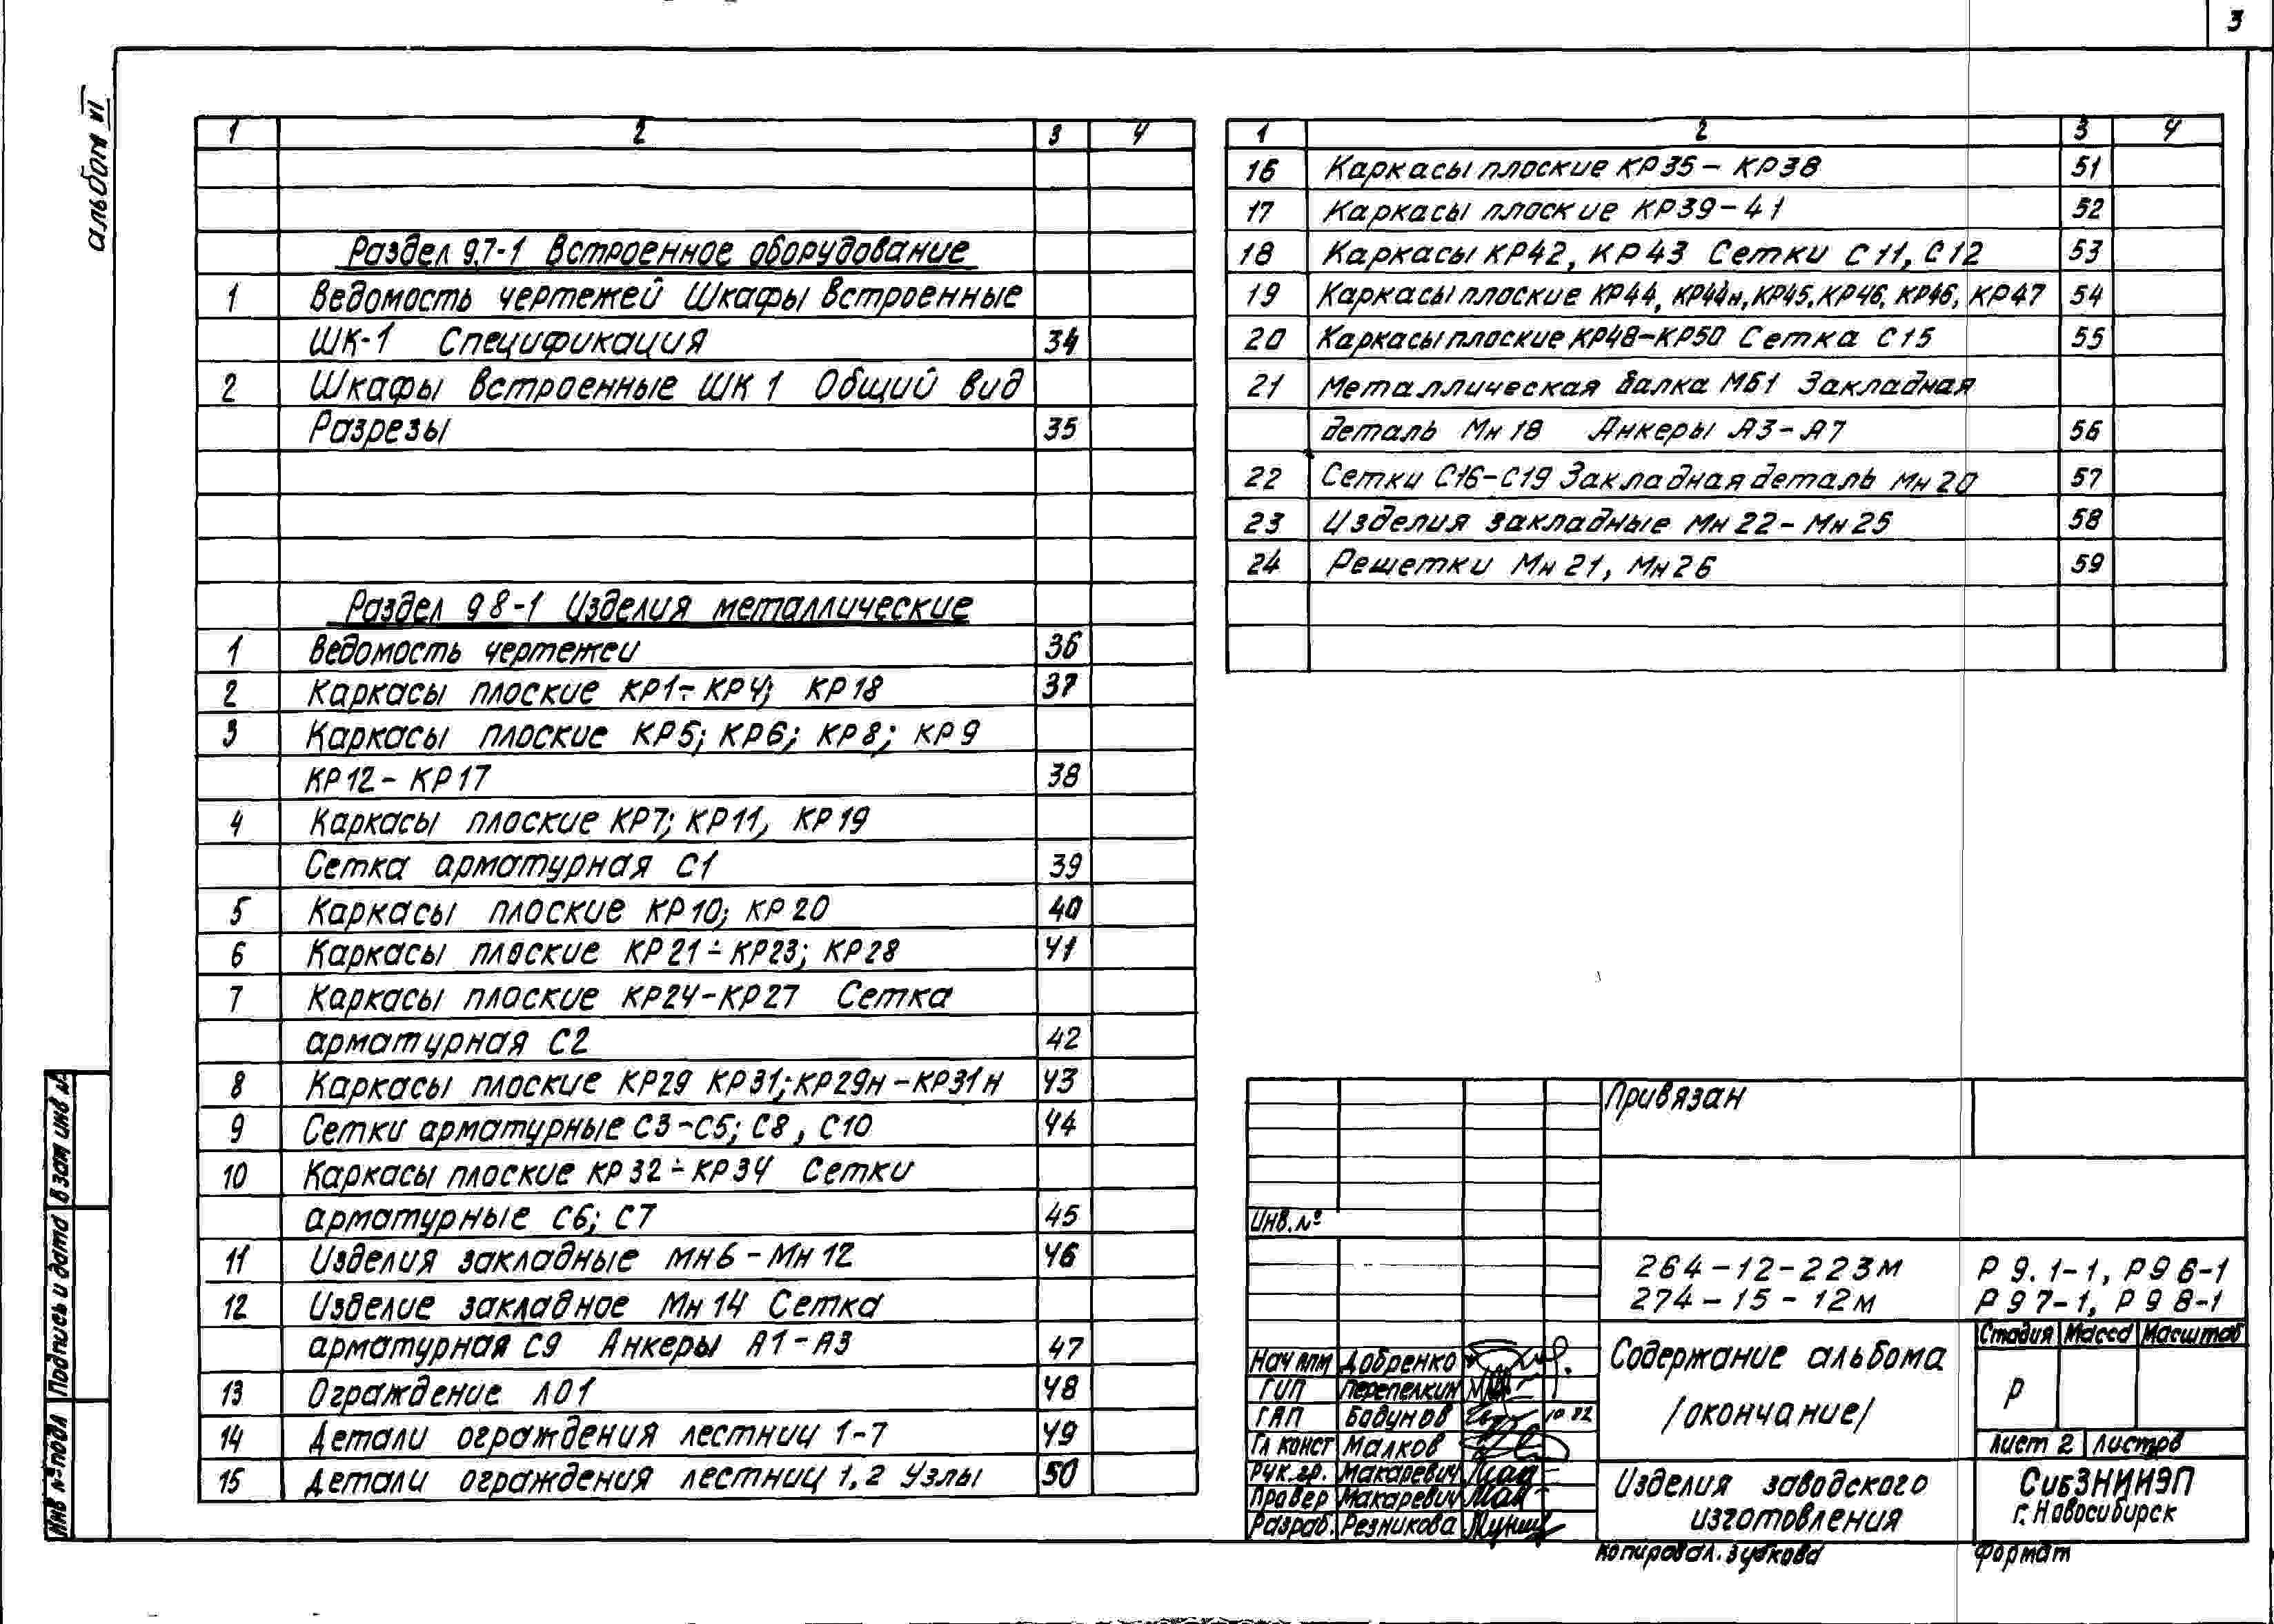 3
альбом VI
1 2 3 4
Раздел 9.7-1 Встроенное оборудование
1 Ведомость чертежей Шкафы встроенные
ШК-1 Спецификация 34
2 Шкафы встроенные ШК 1 Общий вид
Разрезы 35
Раздел 9 8-1 Изделия металлические
1 Ведомость чертежеи 36
2 Каркасы плоские КР1÷КР4; КР18 37
3 Каркасы плоские КР5; КР6; КР8; КР9
КР12-КР17 38
4 Каркасы плоские КР7; КР11, КР19
Сетка арматурная С1 39
5 Каркасы плоские КР10; КР20 40
6 Каркасы плоские КР21÷КР23; КР28 41
7 Каркасы плоские КР24-КР27 Сетка
арматурная С2 42
8 Каркасы плоские КР29 КР31; КР29н-КР31н 43
9 Сетки арматурные С3-С5; С8, С10 44
10 Каркасы плоские КР32÷КР34 Сетки
арматурные С6; С7 45
11 Изделия закладные Мн6-Мн12 46
12 Изделие закладное Мн14 Сетка
арматурная С9 Анкеры А1-А3 47
13 Ограждение ЛО1 48
14 Детали ограждения лестниц 1-7 49
15 Детали ограждения лестниц 1,2 Узлы 50
1 2 3 4
16 Каркасы плоские КР35-КР38 51
17 Каркасы плоские КР39-41 52
18 Каркасы КР42, КР43 Сетки С11, С12 53
19 Каркасы плоские КР44, КР44н, КР45, КР46, КР46, КР47 54
20 Каркасы плоские КР48-КР50 Сетка С15 55
21 Металлическая балка МБ1 Закладная
деталь Мн18 Анкеры А3-А7 56
22 Сетки С16-С19 Закладная деталь Мн20 57
23 Изделия закладные Мн22-Мн25 58
24 Решетки Мн21, Мн26 59
Привязан
Инв.№
264-12-223м Р 9.1-1, Р 9 6-1
274-15-12м Р 9 7-1, Р 9 8-1
Содержание альбома
/окончание/
Стадия Масса Масштаб
Р
Лист 2 Листов
Нач АПМ Добренко
ГИП Перепелкин
ГАП Бадунов 10 82
Гл конст Малков
Рук.гр. Макаревич
Провер Макаревич
Разраб. Резникова
Изделия заводского
изготовления
СибЗНИИЭП
г. Новосибирск
Копировал. Зубкова
Формат
Взам инв №
Подпись и дата
Инв № подл